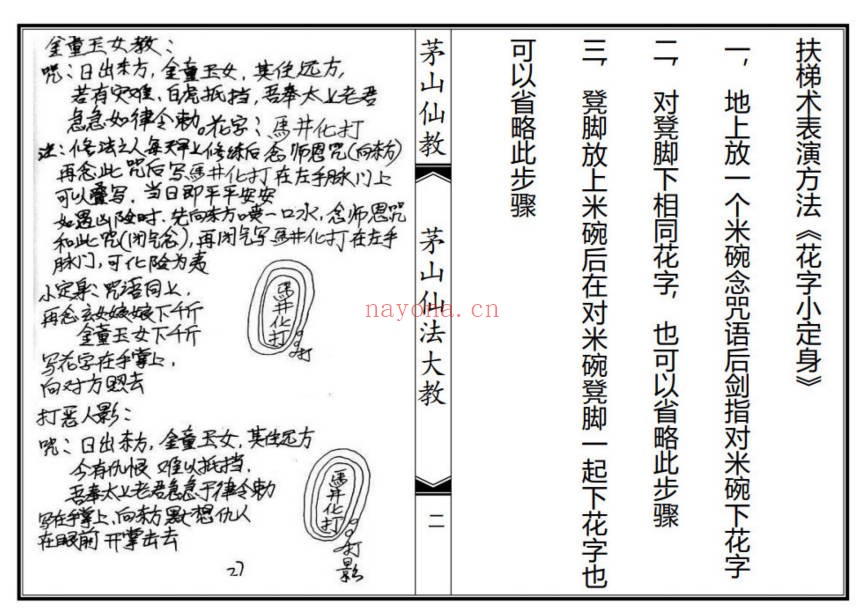 扶梯术表演方法《花字小定身》
一，地上放一个米碗念咒语后剑指对米碗下花字
二，对凳脚下相同花字，也可以省略此步骤
三，凳脚放上米碗后在对米碗凳脚一起下花字也
可以省略此步骤
茅山仙教
茅山仙法大教
二
金童玉女教：
咒：日出东方，金童玉女，其住远方，
若有灾难，白虎抵挡，吾奉太上老君
急急如律令勅。花字：馬井化打
法：修法之人每天早上修练后念师恩咒(向东方)
再念此咒后写馬井化打在左手脉门上
可以叠写，当日即平平安安
如遇凶险时，先向东方喷一口水，念师恩咒
和此咒(闭气念)，再闭气写馬井化打在左手
脉门，可化险为夷
小定身：咒语同上，
再念玄女娘娘下千斤
金童玉女下千斤
写花字在手掌上，
向对方照去
馬井化打
打
打恶人影：
咒：日出东方，金童玉女，其住远方
今有仇恨，难以抵挡，
吾奉太上老君急急于律令勅
写在手掌上，向东方默想仇人
在眼前 开掌击去
馬井化打
打影
27
nayona.cn